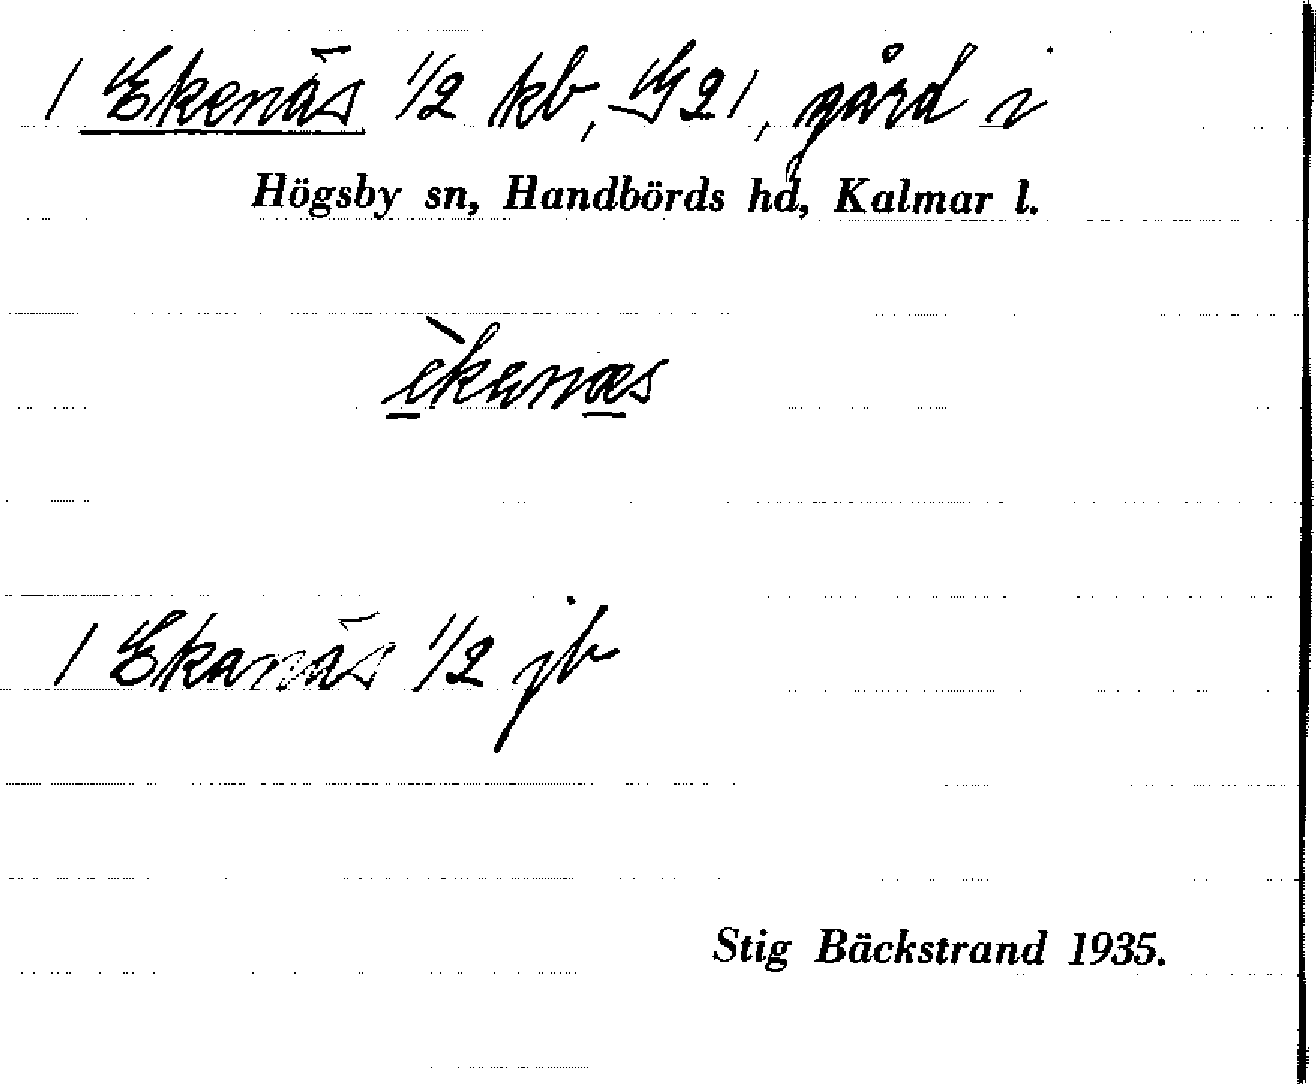 1 Ekenäs 1/2 kb, G 21, gård i
Högsby sn, Handbörds hd, Kalmar l.
èkenæs
1 Ekanäs 1/2 jb
Stig Bäckstrand 1935.